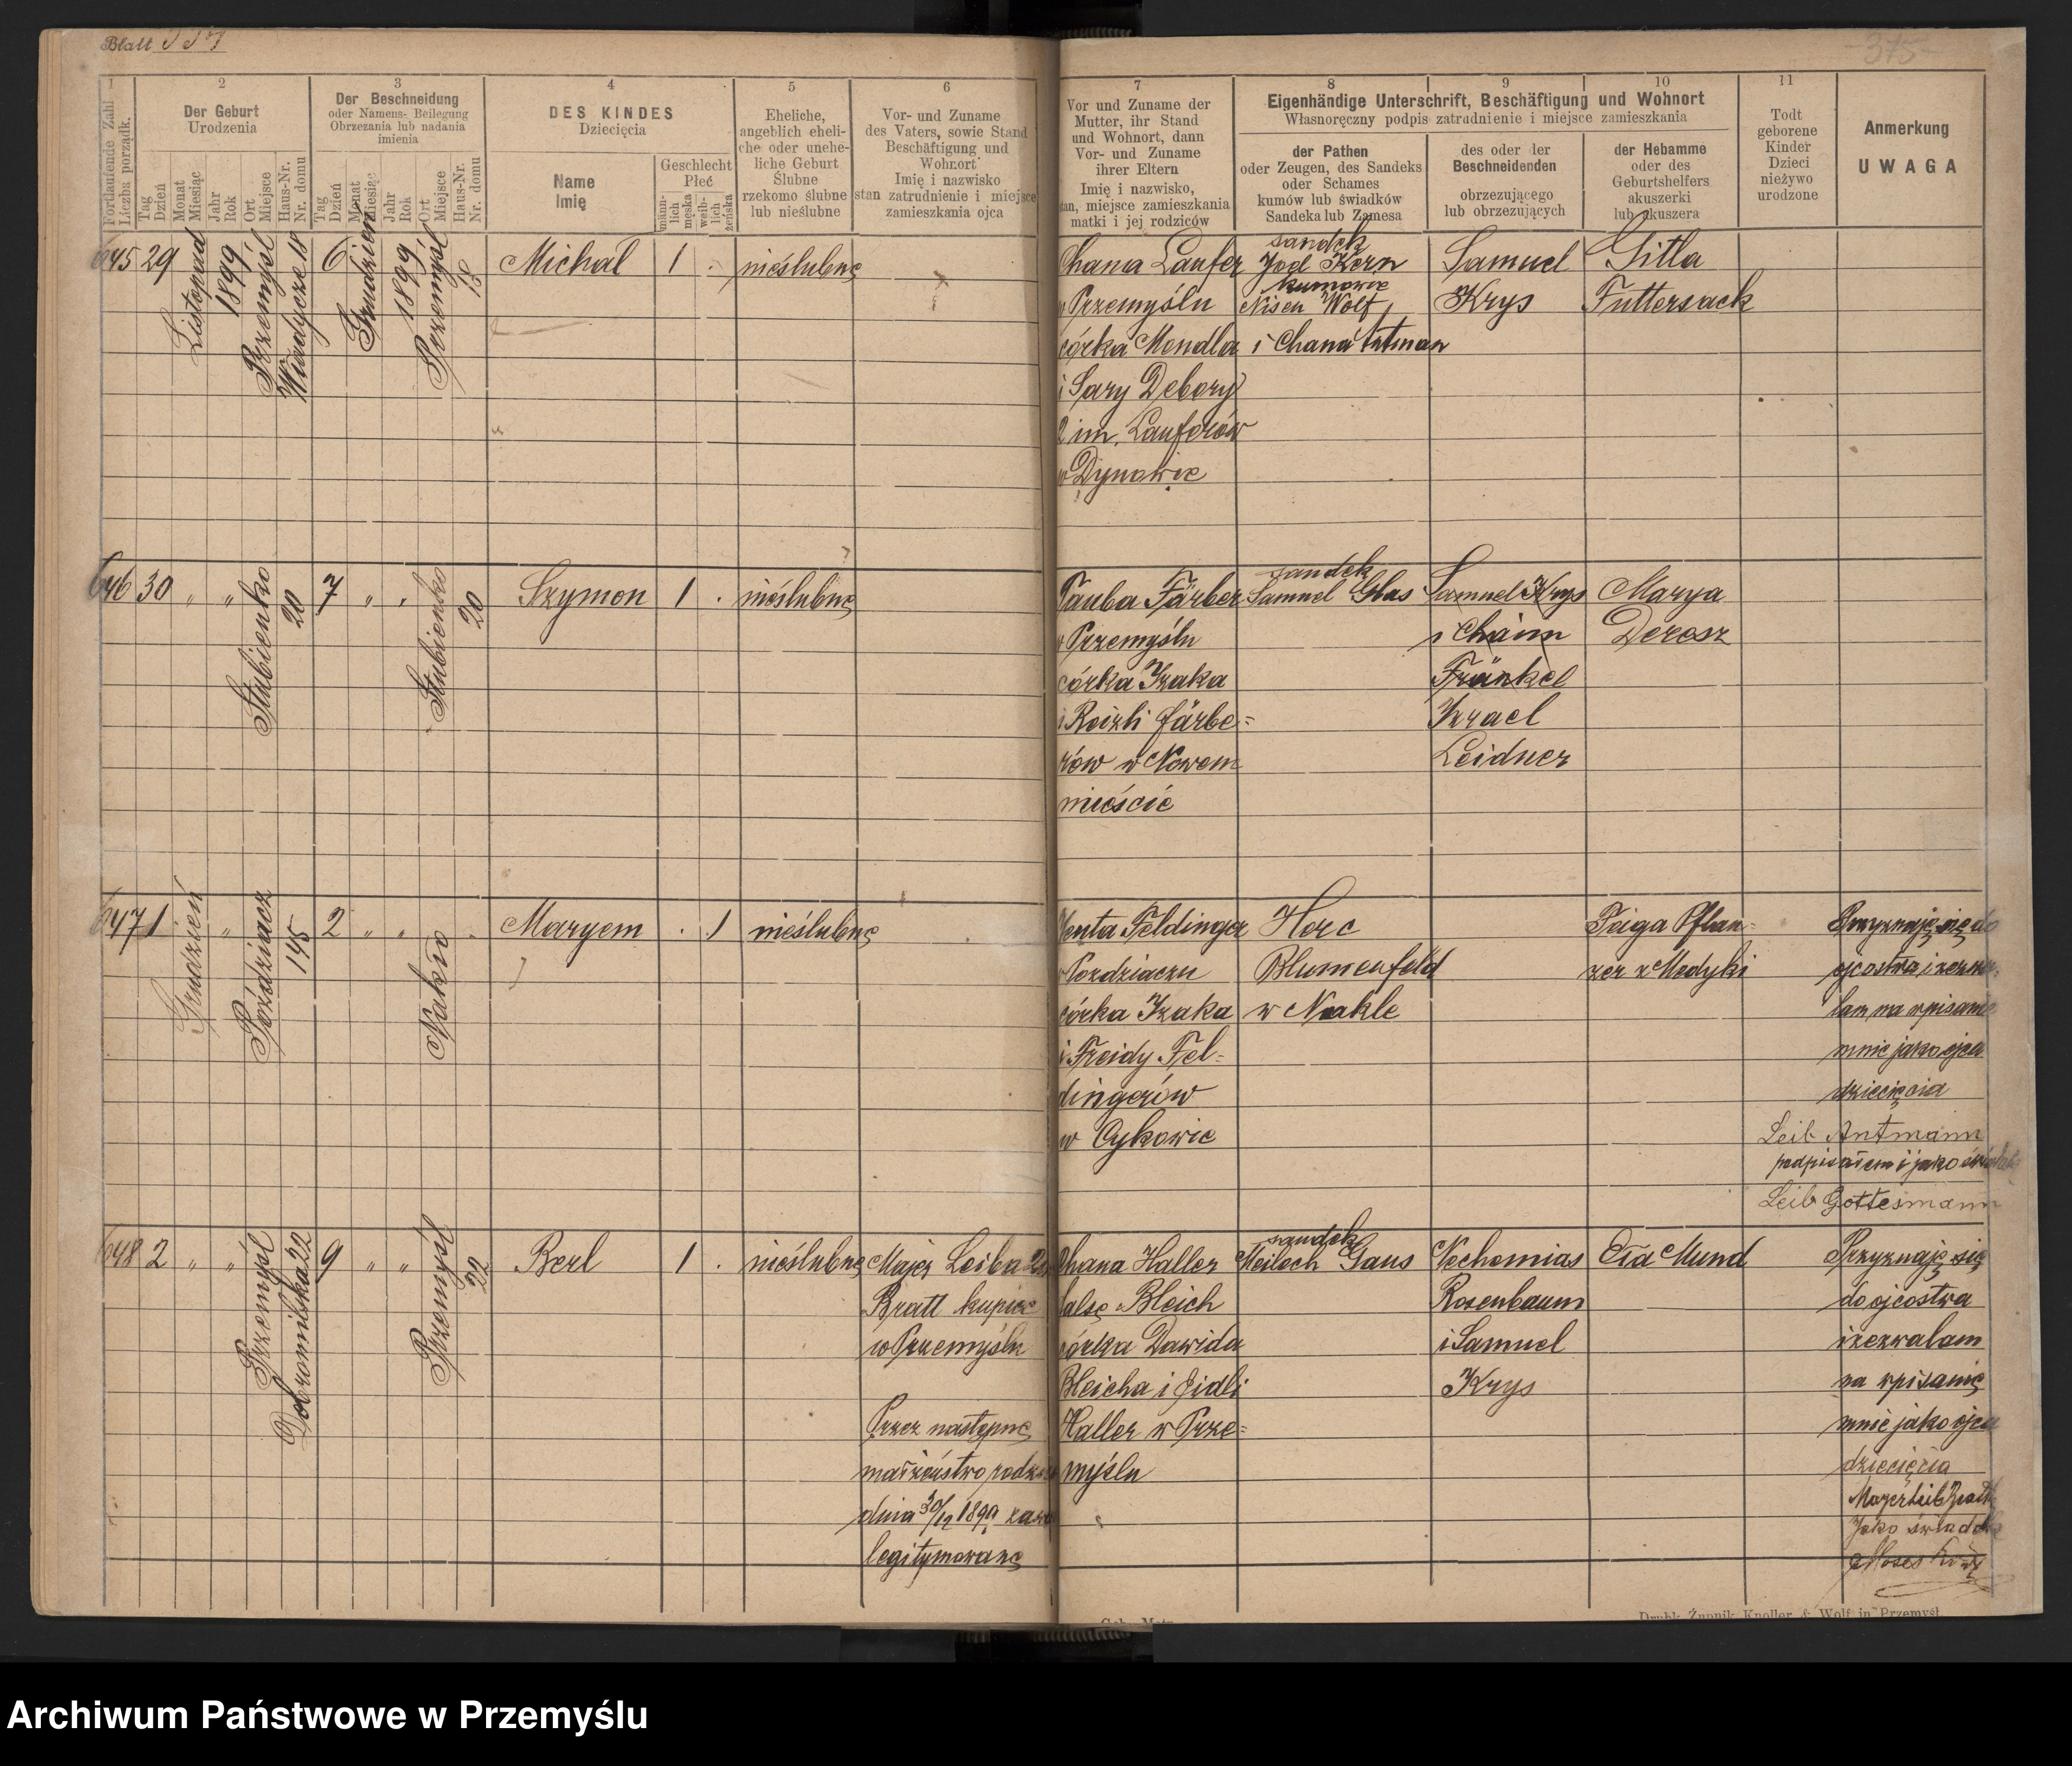 Blatt 337
-375-
1
2
3
4
5
6
7
8
9
10
11
Fortlaufende Zahl
Liczba porządk.
Der Geburt
Urodzenia
Tag
Dzień
Monat
Miesiąc
Jahr
Rok
Ort
Miejsce
Haus-Nr.
Nr. domu
Der Beschneidung
oder Namens- Beilegung
Obrzezania lub nadania
imienia
Tag
Dzień
Monat
Miesiąc
Jahr
Rok
Ort
Miejsce
Haus-Nr.
Nr. domu
DES KINDES
Dziecięcia
Name
Imię
Geschlecht
Płeć
männ-
lich
męska
weib-
lich
żeńska
Eheliche,
angeblich eheli-
che oder unehe-
liche Geburt
Ślubne
rzekomo ślubne
lub nieślubne
Vor- und Zuname
des Vaters, sowie Stand
Beschäftigung und
Wohnort
Imię i nazwisko
stan zatrudnienie i miejsce
zamieszkania ojca
Vor und Zuname der
Mutter, ihr Stand
und Wohnort, dann
Vor- und Zuname
ihrer Eltern
Imię i nazwisko,
stan, miejsce zamieszkania
matki i jej rodziców
Eigenhändige Unterschrift, Beschäftigung und Wohnort
Własnoręczny podpis zatrudnienie i miejsce zamieszkania
der Pathen
oder Zeugen, des Sandeks
oder Schames
kumów lub świadków
Sandeka lub Zamesa
des oder der
Beschneidenden
obrzezującego
lub obrzezujących
der Hebamme
oder des
Geburtshelfers
akuszerki
lub akuszera
Todt
geborene
Kinder
Dzieci
nieżywo
urodzone
Anmerkung
UWAGA
645 29
Listopad
1899
Przemyśl
Władycze 18
6
Grudzień
1899
Przemyśl
18
Michal
1 .
nieślubne
Chana Laufer
w Przemyślu
córka Mendla
i Sary Debory
2 im. Lauferów
w Dynowie
sandek
Joel Kern
kumowie
Nisen Wolf
i Chana Antman
Samuel
Krys
Gitla
Futtersack
646 30 " "
Stubienko
20
7 " "
Stubienko
20
Szymon
1 .
nieślubne
Tauba Färber
w Przemyślu
córka Izaka
i Reizli Färbe=
rów w Nowem
mieście
sandek
Samuel Glas
Samuel Krys
i Chaim
Fränkel
Izrael
Leidner
Marya
Derosz
647 1
Grudzień
"
Poździacz
145
2 " "
Nakło
Maryem
. 1
nieślubne
Yenta Feldinger
w Pozdziaczu
córka Izaka
i Freidy Fel=
dingerów
w Cykowie
Herc
Blumenfeld
w Nakle
Feiga Pflan=
zer z Medyki
Przyznaję się do
ojcostwa i zezwa=
lam na wpisanie
mnie jako ojca
dziecięcia
Leib Antmann
podpisałem i jako świadek
Leib Gottesmann
648 2 " "
Przemyśl
Dobromilska 22
9 " "
Przemyśl
22
Berl
1 .
nieślubne
Majer Leiba 2im
Bratt kupiec
w Przemyślu
Przez następne
małżeństwo rodziców
dnia 30/12 1899
legitymowane
Chana Haller
false Bleich
córka Dawida
Bleicha i Jidli
Haller w Prze=
myślu
sandek
Meilech Gans
Nechemias
Rosenbaum
i Samuel
Krys
Eia Mund
Przyznaję się
do ojcostwa
i zezwalam
na wpisanie
mnie jako ojca
dziecięcia
Mayer Leib Bratt
Jako świadek
Moses
Geb. Matr.
Drubk Żupnik, Knoller & Wolf in Przemyśl
Archiwum Państwowe w Przemyślu